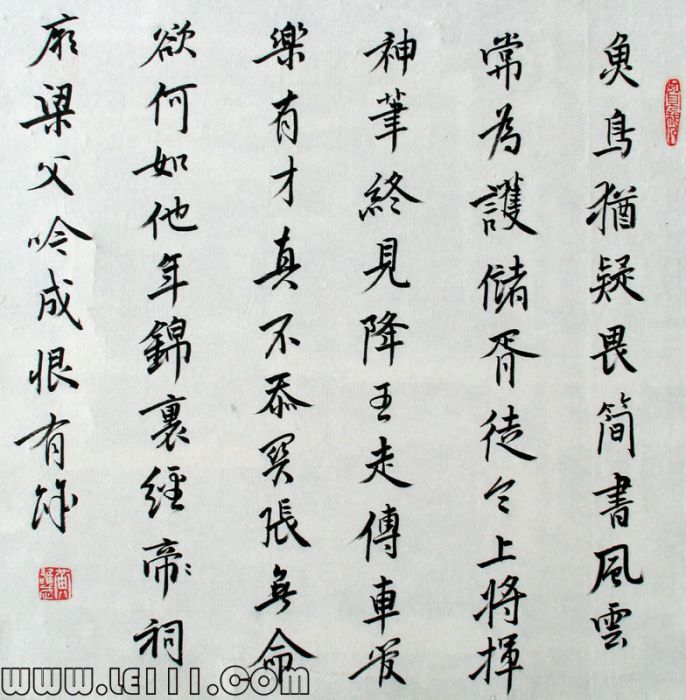 魚鳥猶疑畏簡書風雲
常為護儲胥徒令上將揮
神筆終見降王走傳車管
樂有才真不忝關張無命
欲何如他年錦裏經帝祠
廟梁父吟成恨有餘